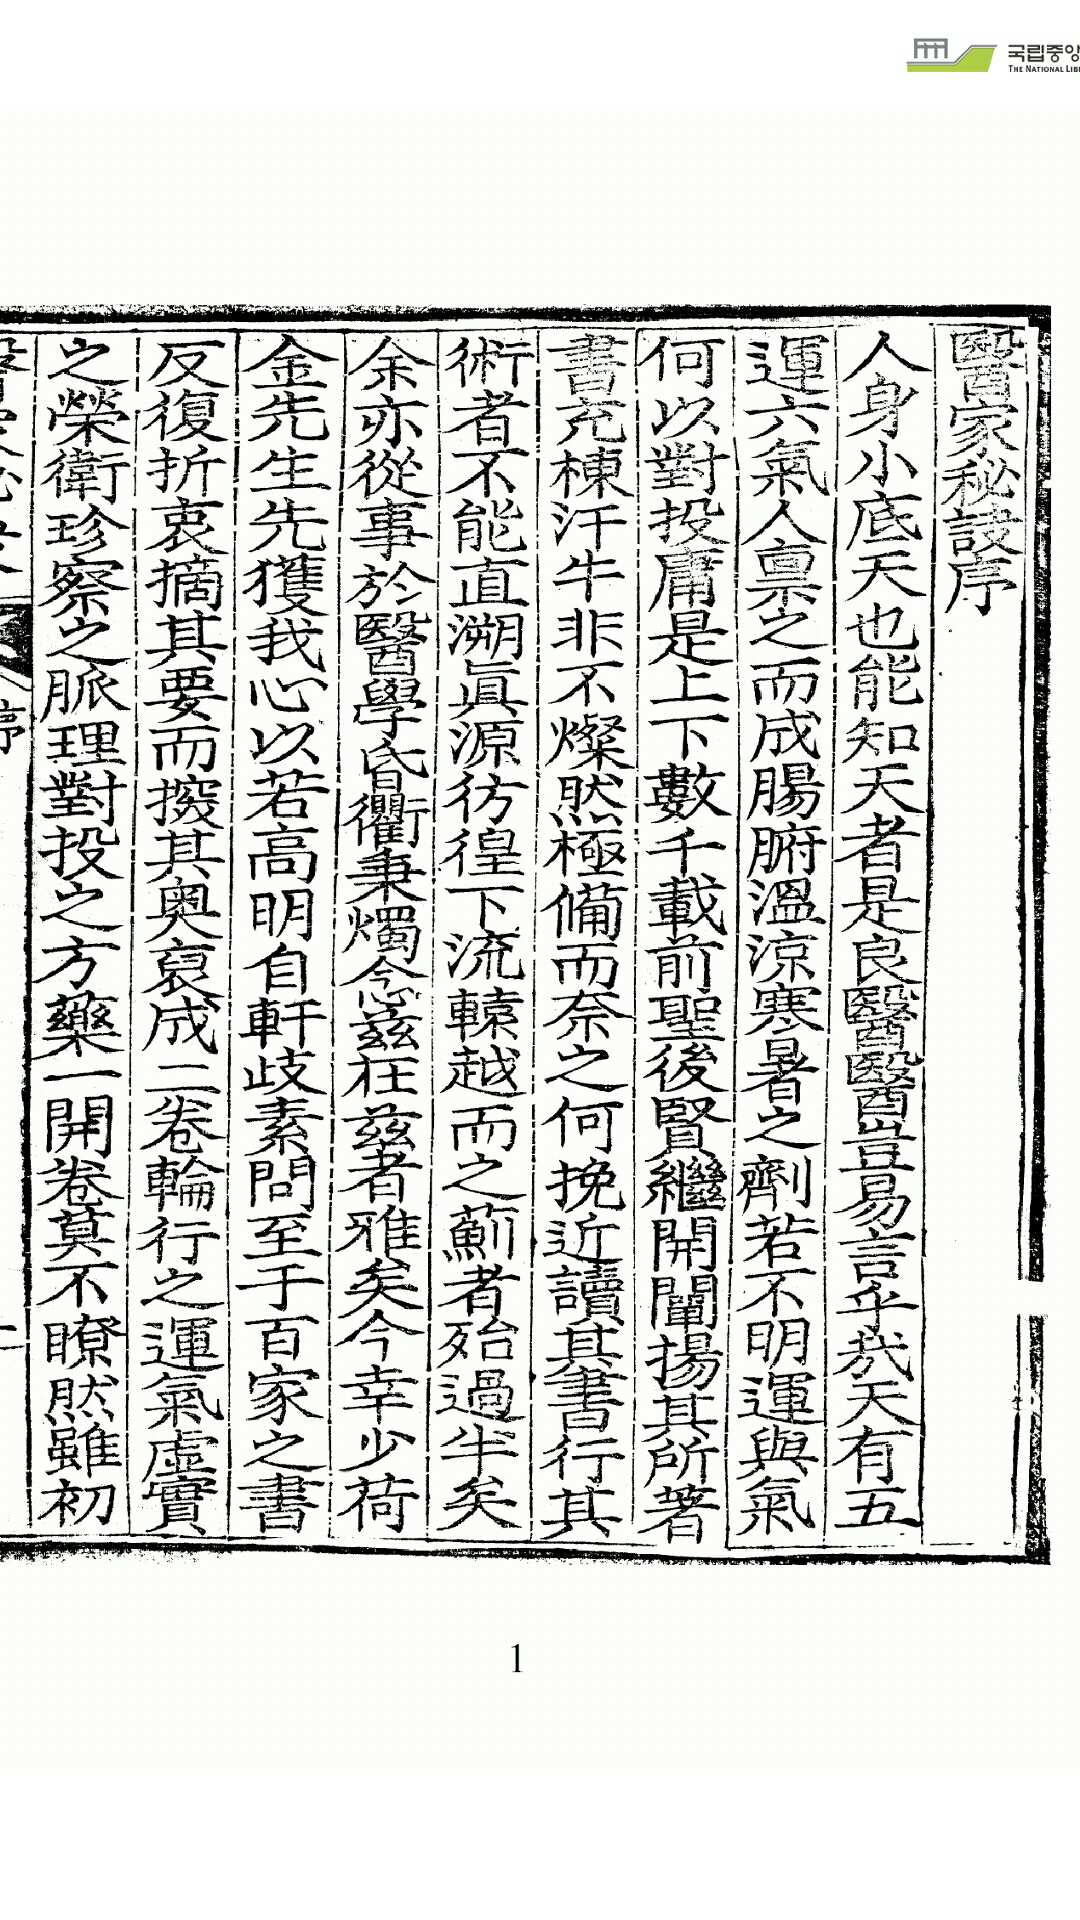 국립중앙
THE NATIONAL LIB
醫家秘訣序
人身小底天也能知天者是良醫醫豈易言乎哉天有五
運六氣人禀之而成腸腑溫涼寒暑之劑若不明運與氣
何以對投庸是上下數千載前聖後賢繼開闡揚其所著
書充棟汗牛非不燦然極備而奈之何挽近讀其書行其
術者不能直溯眞源彷徨下流轅越而之薊者殆過半矣
余亦從事於醫學昏衢秉燭念玆在玆者雅矣今幸少荷
金先生先獲我心以若高明自軒歧素問至于百家之書
反復折衷摘其要而撥其奧裒成二卷輪行之運氣虛實
之榮衛珍察之脈理對投之方藥一開卷莫不瞭然雖初
序
1